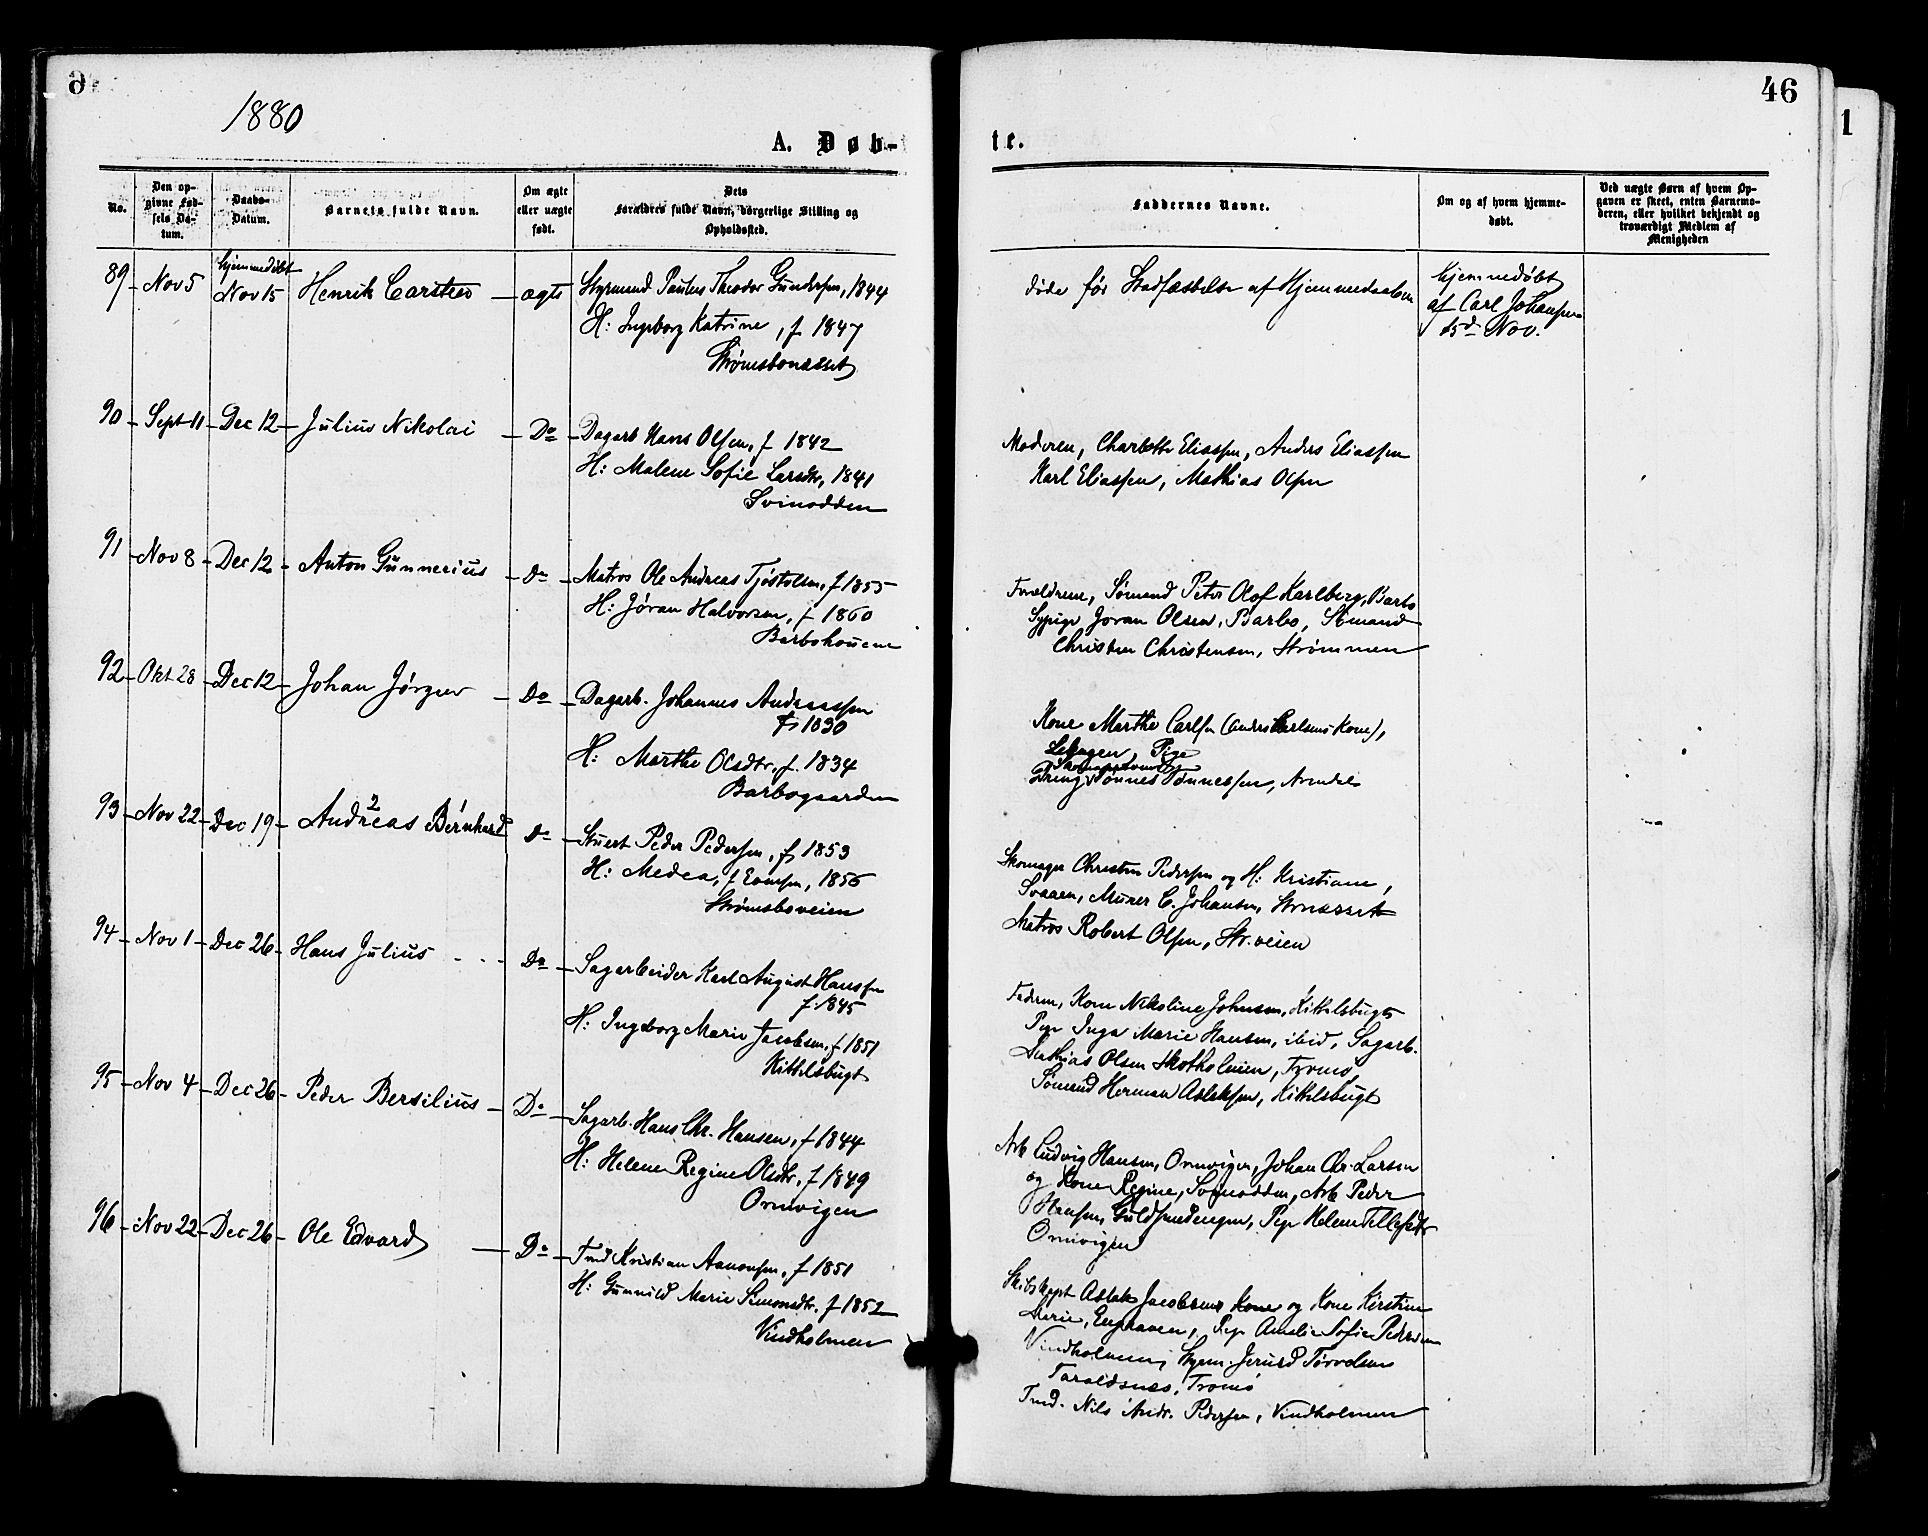 46
1
1880
A. Døb-
te.
No.
Den op-
givne Fød-
sels Da-
tum.
Daabs-
Datum.
Barnets fulde Navn.
Om ægte
eller uægte
født.
Dets
Forældres fulde Navn, borgerlige Stilling og
Opholdssted.
Faddernes Navne.
Om og af hvem hjemme-
døbt.
Ved uægte Børn af hvem Op-
gaven er skeet, enten Barnemo-
deren, eller hvilket bekjendt og
troværdigt Medlem af
Menigheden
89 Nov 5 hjemmedøbt Nov 15 Henrik Carsten ægte Styrmand Paulus Theodor Gundersen, 1844
H: Ingeborg Katrine, f 1847
Strømsbonæsset
døde før Stadfæstelse af Hjemmedaaben
hjemmedøbt
af Carl Johansen
15d Nov.
90 Sept 11 Dec 12 Julius Nikolai Do Dagarb Hans Olsen, f 1842
H: Malene Sofie Larsdtr, 1841
Svinodden
Moderen, Charlotte Eliassen, Anders Eliassen
Karl Eliassen, Mathias Olsen
91 Nov 8 Dec 12 Anton Gunnerius Do Matros Ole Andreas Tjøstolsen, f 1855
H: Jøran Halvorsen, f 1860
Barbohouene
Forældrene, Sømand Peter Olof Karlberg, Barbo
Sypige Joran Olsen, Barbo, Sømand
Christen Christensen, Strømmen
92 Okt 28 Dec 12 Johan Jørgen Do Dagarb. Johannes Andreassen
f 1830
H: Marthe Olsdtr, f. 1834
Barbogaarden
Kone Marthe Carlsen (Anders Carlsens Kone),
Pige
Tønnes Tønnessen, Arendal
93 Nov 22 Dec 19 Andreas Bernhard Do Stuert Peder Pedersen, f 1853
H: Medea, f Evensen, 1856
Strømsboveien
Skomager Christen Pedersen og H: Kristiane,
Svaaen, Murer C. Johansen, Strnæsset
Matros Robert Olsen, Str.veien
94 Nov 1 Dec 26 Hans Julius Do Sagarbeider Karl August Hanssen
f. 1845
H: Ingeborg Marie Jacobsen, f 1851
Kittelsbugt
Faderen, Kone Nikoline Johnsen, Kittelsbugt
Pige Inga Marie Hansen, ibid, Sagarb.
Mathias Olsen Skotholmen, Tromø
Sømand Herman Aslaksen, Kittelsbugt
95 Nov 4 Dec 26 Peder Bersilius Do Sagarb. Hans Chr. Hansen, f 1844
H: Helene Regine Olsdtr, f 1849
Ormvigen
Arb Ludvig Hansen, Ormvigen, Johan Chr. Larsen
og Kone Regine, Svinodden, Arb Peder
Hansen, Guldsmedengen, Pige Helene Tellefsdtr
Ormvigen
96 Nov 22 Dec 26 Ole Edvard Do Tmd Kristian Aanonsen, f 1851
H: Gunnild Marie Simonsdtr. f 1852
Vindholmen
Skibskapt Aslak Jacobsens Kone og Kone Kirstine
Marie, Enghaven, Pige Amalie Sofie Pedersen
Vindholmen, Styrm. Jerund Torvelsen
Taraldsnes, Tromø
Tmd. Nils Andr. Pedersen, Vindholmen